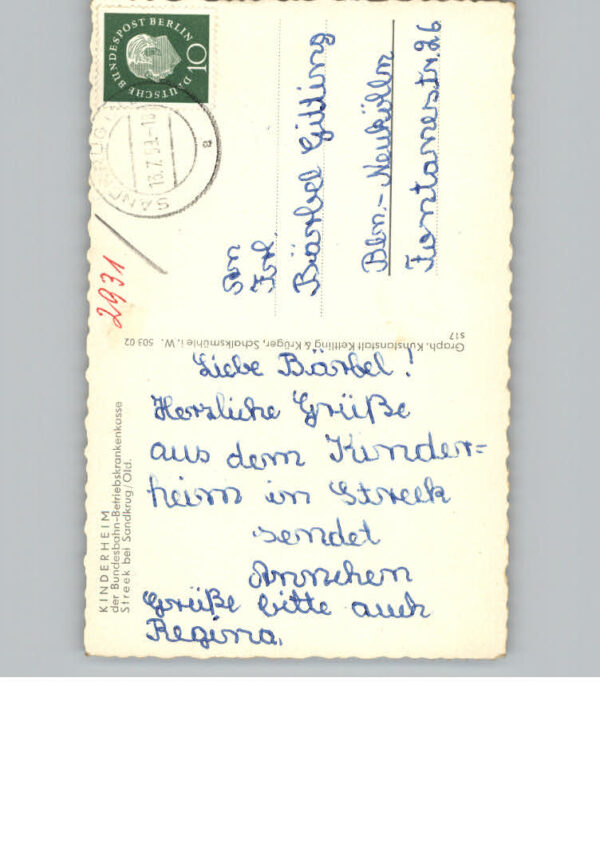 DEUTSCHE BUNDESPOST BERLIN
10
SANDKRUG
13.7.59.-18
a
2931
An
Frl.
Bärbel Gilling
Bln.-Neukölln
Fontanestr. 26
Graph. Kunstanstalt Kettling & Krüger, Schalksmühle i. W. 503 02
S17
KINDERHEIM
der Bundesbahn-Betriebskrankenkasse
Streek bei Sandkrug/Old.
Liebe Bärbel!
Herzliche Grüße
aus dem Kinder=
heim in Streek
sendet
Annchen
Grüße bitte auch
Regina.